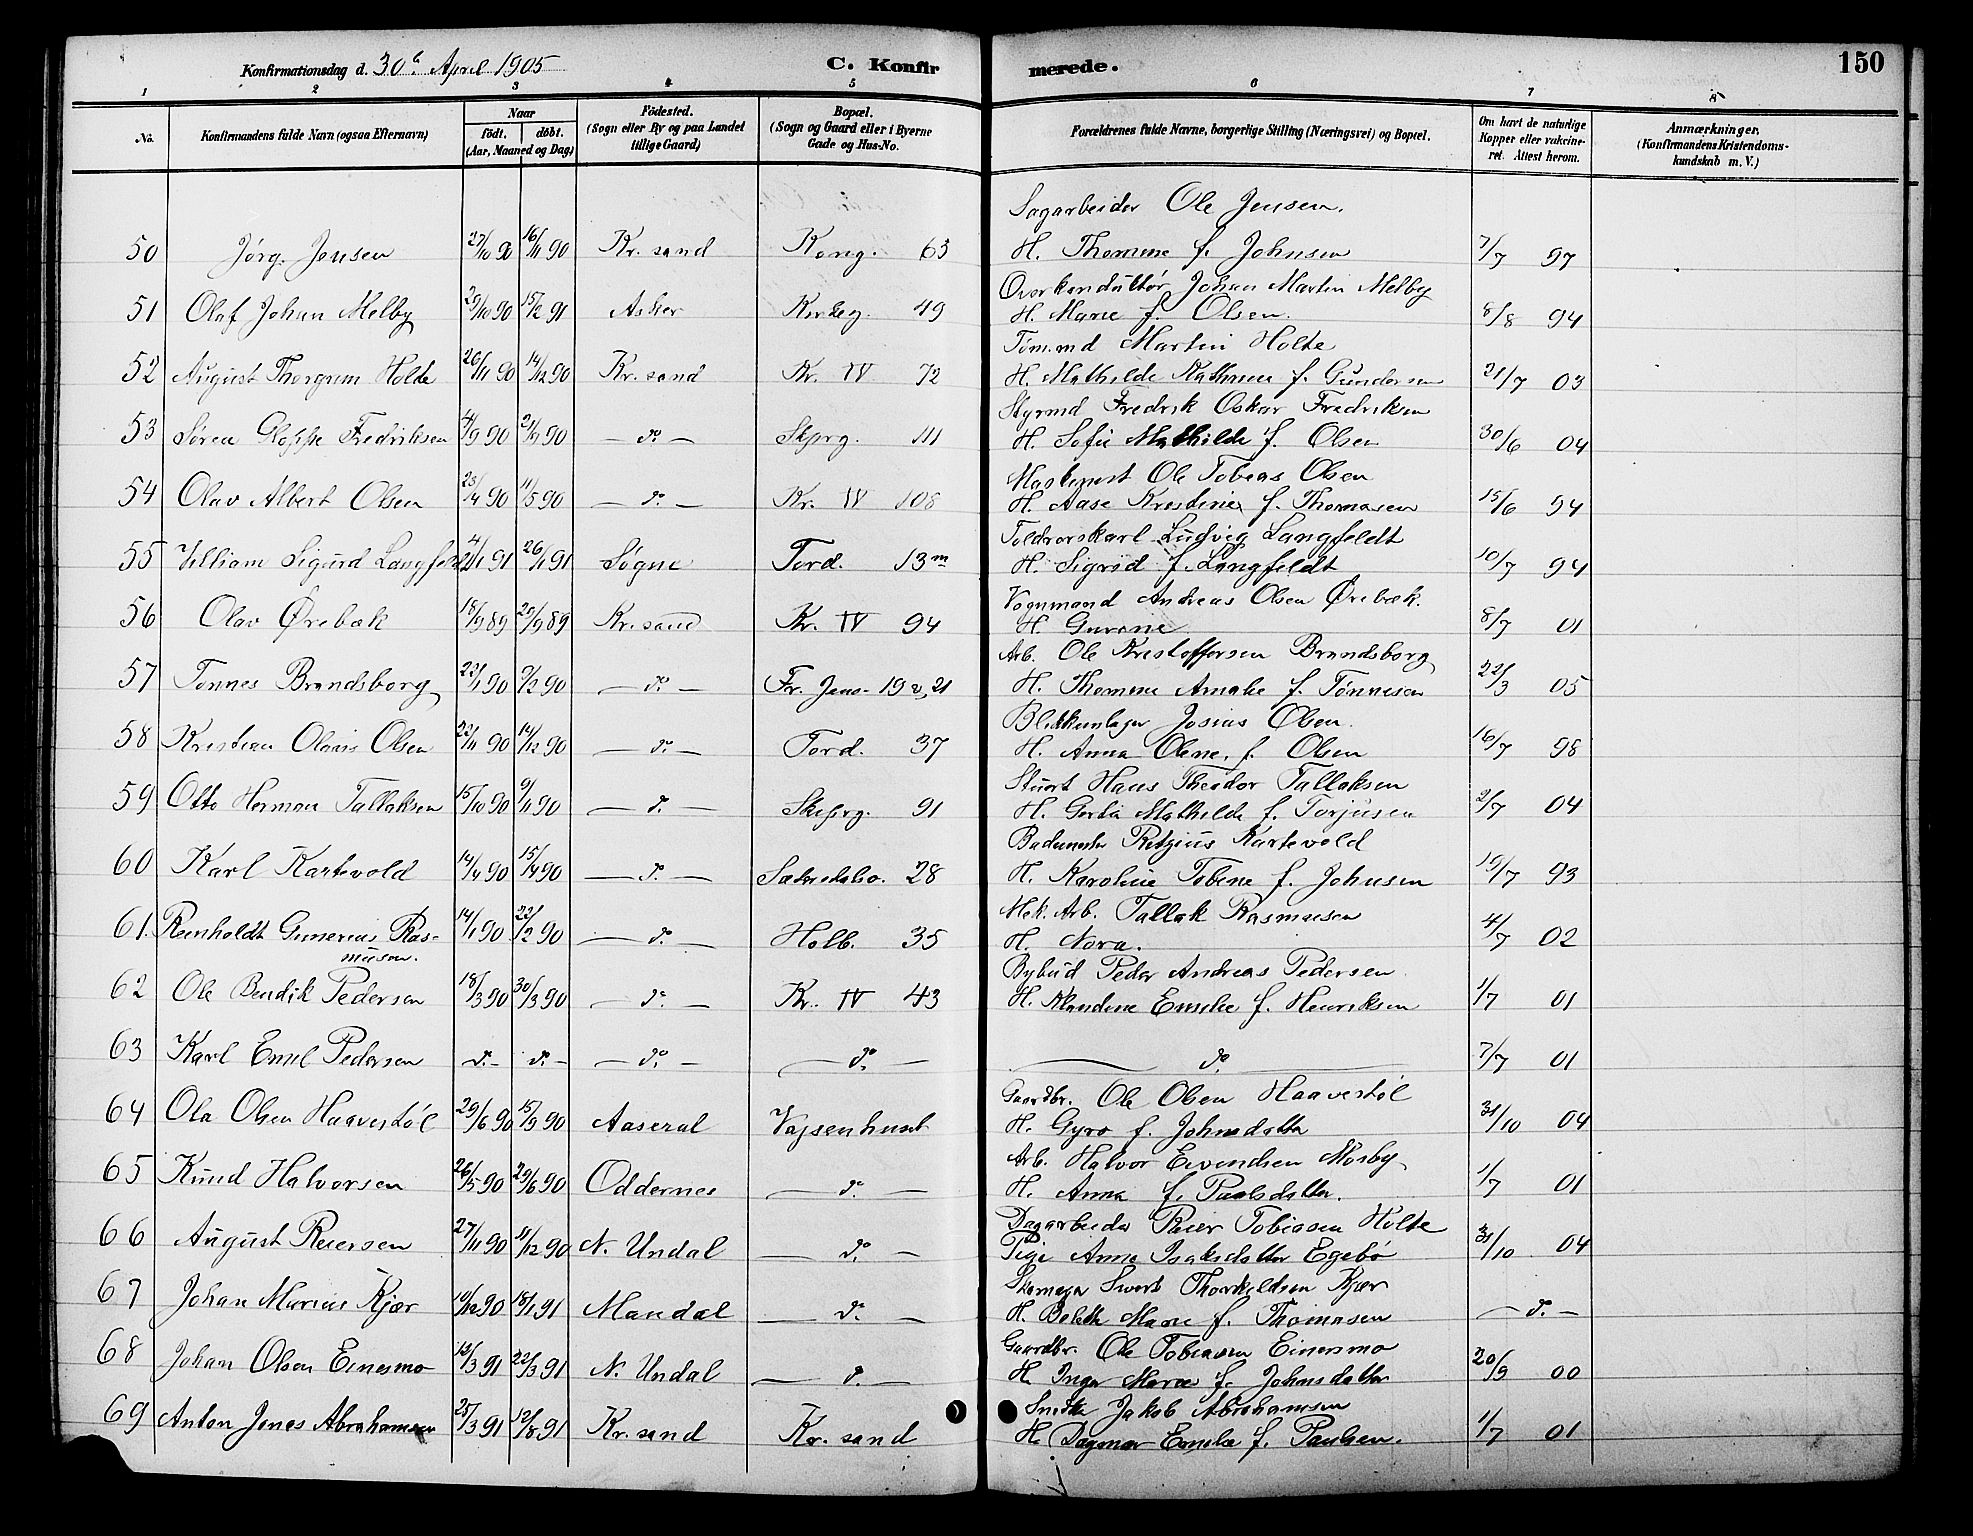 Konfirmationsdag d. 30te April 1905
C. Konfir merede. 150
1 2 3 4 5 6 7 8
No. Konfirmandens fulde Navn (ogsaa Efternavn) Naar födt. döbt. (Aar, Maaned og Dag) Födested. (Sogn eller By og paa Landet tillige Gaard) Bopæl. (Sogn og Gaard eller i Byerne Gade og Hus-No. Forældrenes fulde Navne, borgerlige Stilling (Næringsvei) og Bopæl. Om havt de naturlige Kopper eller vakcineret. Attest herom. Anmærkninger, (Konfirmandens Kristendomskundskab m. V.)
Sagarbeider Ole Jensen.
50 Jörg. Jensen 27/10 90 16/11 90 Kr. sand Kong. 63 H. Thomine f. Johnsen 7/7 97
Overkonduktør Johan Martin Melby
51 Olaf Johan Melby 29/10 90 15/2 91 Asker Kirkeg. 49 H. Marie f. Olsen. 8/8 94
Tøm.md Martin Holte
52 August Thorgrim Holte 26/11 90 14/12 90 Kr. sand Kr. IV 72 H. Mathilde Kathrine f. Gundersen 21/7 03
Styrmd Fredrik Oskar Fredriksen
53 Sören Gloppe Fredriksen 4/9 90 21/9 90 — do — Skprg. 111 H. Sofie Mathilde f. Olsen 30/6 04
Maskinist Ole Tobias Olsen
54 Olav Albert Olsen 23/4 90 11/5 90 — do — Kr. IV 108 H. Aase Kristine f. Thomasen 15/6 94
Toldrorskarl Ludvig Langfeldt
55 William Sigurd Langfeldt 4/1 91 26/1 91 Søgne Tord. 13 m H. Sigrid f. Langfeldt 10/7 94
Vognmand Andreas Olsen Örebæk.
56 Olav Örebæk 18/9 89 29/9 89 Kr. sand Kr. IV 94 H. Gurine 8/7 01
Arb. Ole Kristoffersen Brandsborg
57 Tønnes Brandsborg 22/1 90 9/2 90 — do — Fr. Jens. 19 v. 21 H. Thomine Amalie f. Tønnesen 22/3 05
Blikkenslager Josias Olsen.
58 Kristian Olavis Olsen 22/11 90 14/12 90 — do — Tord. 37 H. Anna Oline, f. Olsen 16/7 98
Stuert Hans Theodor Tallaksen
59 Otto Herman Tallaksen 15/10 90 9/11 90 — do — Skprg. 91 H. Gertia Mathilde f. Torjusen 2/7 04
Bademester Retzius Kartevold
60 Karl Kartevold 14/4 90 15/4 90 — do — Sætredalso. 28 H. Karoline Tobine f. Johnsen 19/7 93
Mek. Arb. Tallak Rasmusen
61. Reinholdt Gunerius Ras-musen. 14/1 90 22/2 90 — do — Holb. 35 H. Nora. 4/7 02
Bybud Peder Andreas Pedersen
62 Ole Bendik Pedersen 18/3 90 30/3 90 — do — Kr. IV 43 H. Klandine Emilie f. Henriksen 1/7 01
63 Karl Emil Pedersen do — do — — do — — do — — do — 7/7 01
Gaardbr. Ole Olsen Haavestöl
64 Ola Olsen Haavestöl 29/6 90 15/9 90 Aaseral Vajsenhuset H. Gyro f. Johnsdatter 31/10 04
Arb. Halvor Eivindsen Mosby
65 Knud Halvorsen 26/5 90 29/6 90 Oddernes — do — H. Anna f. Paulsdatter. 1/7 01
Dagarbeider Reier Tobiasen Holte
66 August Reiersen 27/11 90 11/12 90 N. Undal — do — Pige Anna Isaksdatter Egebø 31/10 04
Skomager Sivert Thorkildsen Kjær
67 Johan Marius Kjær 10/12 90 18/1 91 Mandal — do — H. Beleth Marie f. Thomasen — do —
Gaardbr. Ole Tobiasen Einesmo
68 Johan Olsen Einesmo 12/3 91 22/3 91 N. Undal — do — H. Inger Marie f. Johnsdatter 20/9 00
Snedker Jakob Abrahamsen
69 Anton Jenes Abrahamsen 25/3 91 12/8 91 Kr. sand Kr. sand H. Dagmar Emilie f. Paulsen. 1/7 01